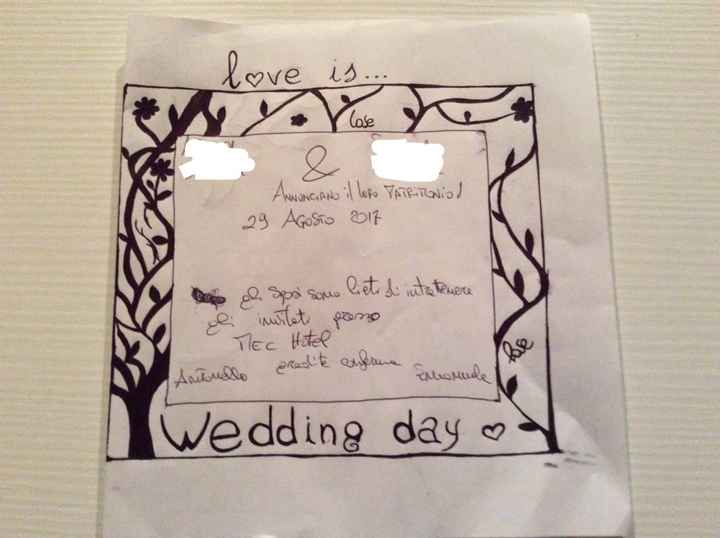 love is...
love
&
ANNUNCIANO il loro MATRIMONIO!
29 AGOSTO 2017
gli sposi sono lieti di intrattenere
gli invitati presso
MEC Hotel
gradita conferma
Antonello
Emanuele
love
Wedding day